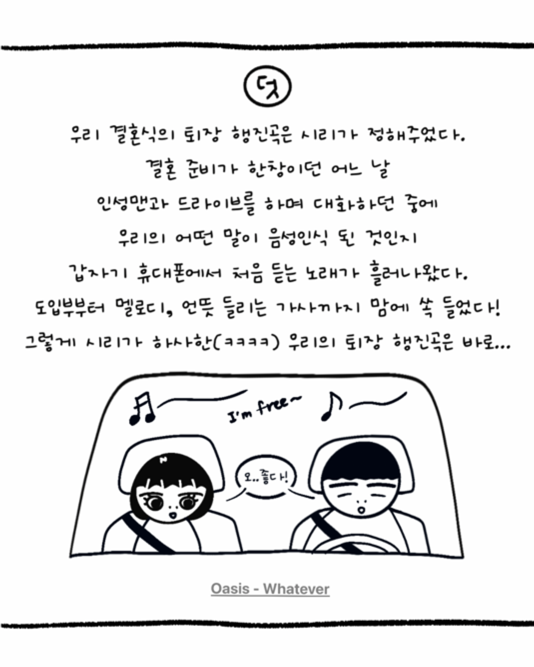 덧
우리 결혼식의 퇴장 행진곡은 시리가 정해주었다.
결혼 준비가 한창이던 어느 날
인성맨과 드라이브를 하며 대화하던 중에
우리의 어떤 말이 음성인식 된 것인지
갑자기 휴대폰에서 처음 듣는 노래가 흘러나왔다.
도입부부터 멜로디, 언뜻 들리는 가사까지 맘에 쏙 들었다!
그렇게 시리가 하사한(ㅋㅋㅋㅋ) 우리의 퇴장 행진곡은 바로...
I'm free~
오..좋다!
Oasis - Whatever